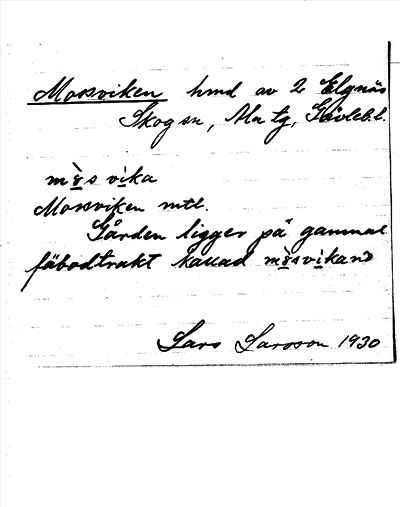 Mossviken hmd av 2 Elgnäs
Skog sn, Ala tg, Gävleb.l.
mò̱s vi̱ka
Mossviken mtl.
Gården ligger på gammal
fäbodtrakt kallad
Lars Larsson 1930